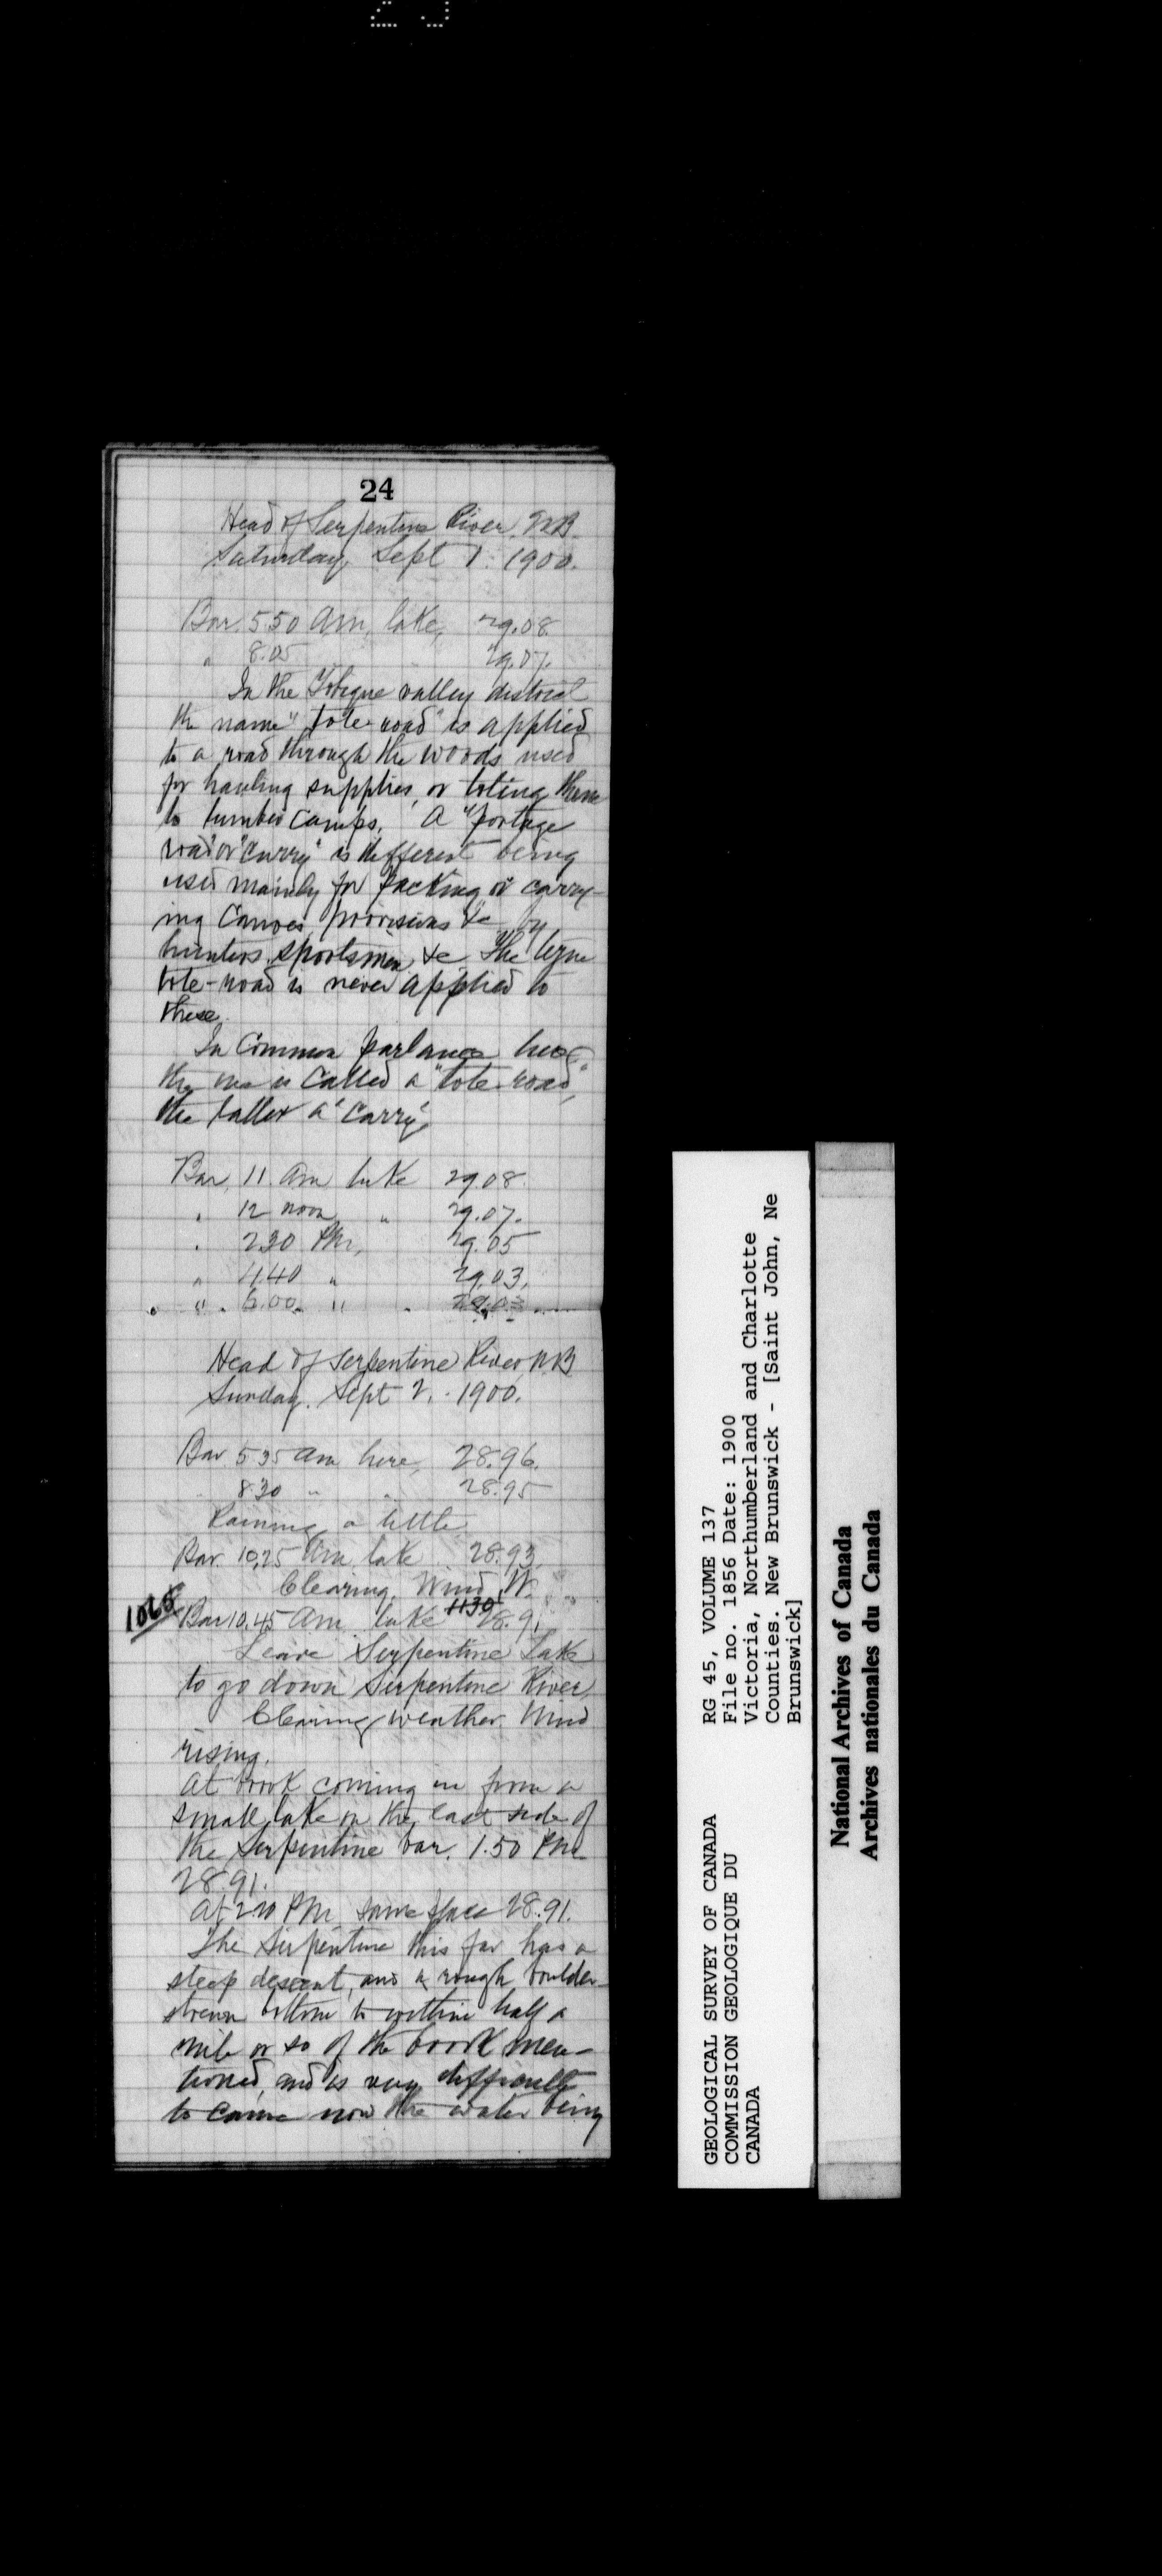 24
Head of Serpentine River, N.B.
Saturday Sept 1. 1900.
Bar. 5.50 Am, lake, 29.08
" 8.05 29.07.
In the Tobique valley district
the name "tote-road" is applied
to a road through the woods used
for hauling supplies, or toting them
to lumber camps. A "portage
road" or "carry" is different being
used mainly for packing or carry-
ing canoes, provisions &c by
hunters, sportsmen &c. The term
tote-road is never applied to
these.
In common parlance here
the one is called a "tote-road,"
the latter a "carry".
Bar, 11. Am lake 29.08.
" 12 noon " 29.07.
" 2.30 Pm, 29.05
" 4.40 " 29.03.
" 6.00 " 29.03
Head of Serpentine River, N.B
Sunday. Sept 2. 1900.
Bar. 5.35 am here, 28.96.
" 8.30 " " 28.95
Raining a little
Bar. 10.25 Am lake 28.93
Clearing. Wind W.
1068 Bar 10.45 Am lake 1130 28.91
Leave Serpentine Lake
to go down Serpentine River,
Clearing weather. Wind
rising.
At brook coming in from a
small lake on the east side of
the Serpentine bar. 1.50 Pm
28.91.
At 2.10 Pm same place 28.91.
The Serpentine this far has a
steep descent, and a rough boulder-
strewn bottom to within half a
mile or so of the brook men-
tioned, and is very difficult
to canoe now the water being
GEOLOGICAL SURVEY OF CANADA
COMMISSION GEOLOGIQUE DU
CANADA
RG 45, VOLUME 137
File no. 1856 Date: 1900
Victoria, Northumberland and Charlotte
Counties. New Brunswick - [Saint John, Ne
Brunswick]
National Archives of Canada
Archives nationales du Canada